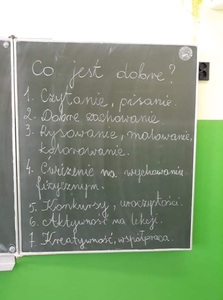 Co jest dobre?
1. Czytanie, pisanie.
2. Dobre zachowanie
3. Rysowanie, malowanie,
kolorowanie.
4. Ćwiczenie na wychowaniu
fizycznym.
5. Konkursy, uroczystości.
6. Aktywność na lekcji.
7. Kreatywność, współpraca.